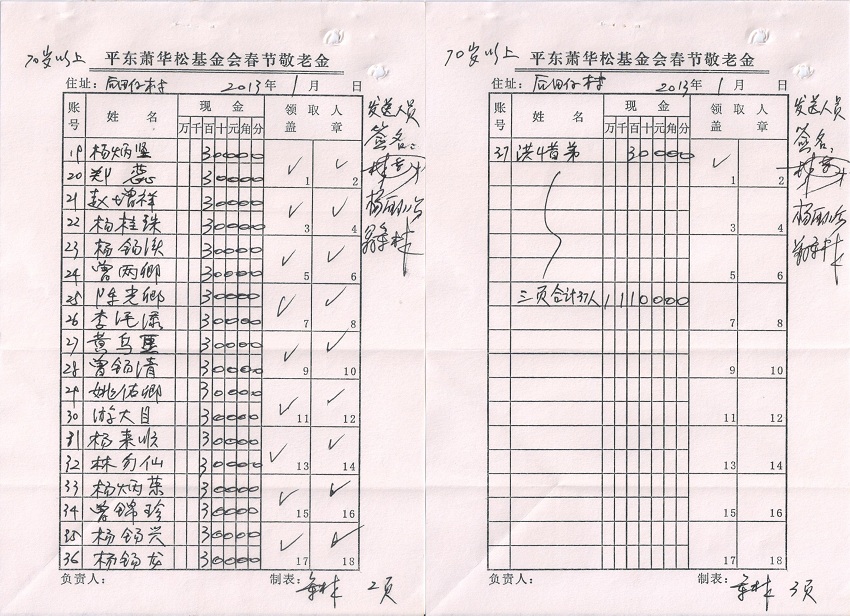 70岁以上 平东萧华松基金会春节敬老金
住址: 后田仔村 2013年 1月 日
账号 姓名 现金 领取人
万千百十元角分 盖章
发送人员
签名:
19 杨炳坚 30000 1
20 郑蕊 30000 2
21 赵增祥 30000 3
22 杨桂珠 30000 4
23 杨锡 30000 5
24 曾两卿 30000 6
25 陈光卿 30000 7
26 李 30000 8
27 黄乌 30000 9
28 曾锡清 30000 10
29 姚佑卿 30000 11
30 游大目 30000 12
31 杨来顺 30000 13
32 林勿仙 30000 14
33 杨炳荣 30000 15
34 曾锦珍 30000 16
35 杨锡兴 30000 17
36 杨锡龙 30000 18
负责人: 制表: 2页
70岁以上 平东萧华松基金会春节敬老金
住址: 后田仔村 2013年 1月 日
账号 姓名 现金 领取人
万千百十元角分 盖章
发送人员
签名:
37 洪 弟 30000 1 2
3 4
5 6
三页合计37人 1110000 7 8
9 10
11 12
13 14
15 16
17 18
负责人: 制表: 3页